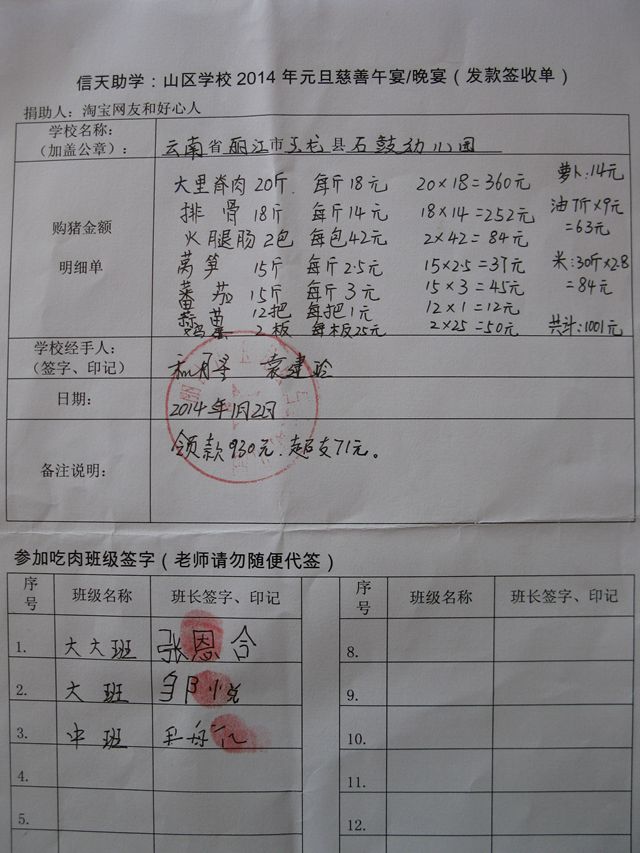 信天助学：山区学校2014年元旦慈善午宴/晚宴（发款签收单）
捐助人：淘宝网友和好心人
学校名称：
（加盖公章）：
云南省丽江市玉龙县石鼓幼儿园
购猪金额
明细单
大里脊肉 20斤 每斤18元 20×18=360元 萝卜:14元
排骨 18斤 每斤14元 18×14=252元 油7斤×9元
=63元
火腿肠 2包 每包42元 2×42=84元
莴笋 15斤 每斤2.5元 15×2.5=37元 米:30斤×2.8
=84元
蕃茄 15斤 每斤3元 15×3=45元
12把 每把1元 12×1=12元
鸡蛋 2板 每板25元 2×25=50元 共计:1001元
学校经手人：
（签字、印记）
袁建玲
日期：
2014年1月2日
备注说明：
领款930元.超支71元。
参加吃肉班级签字（老师请勿随便代签）
序号 班级名称 班长签字、印记 序号 班级名称 班长签字、印记
1. 大大班 张恩合 8.
2. 大班 9.
3. 中班 10.
4. 11.
5. 12.